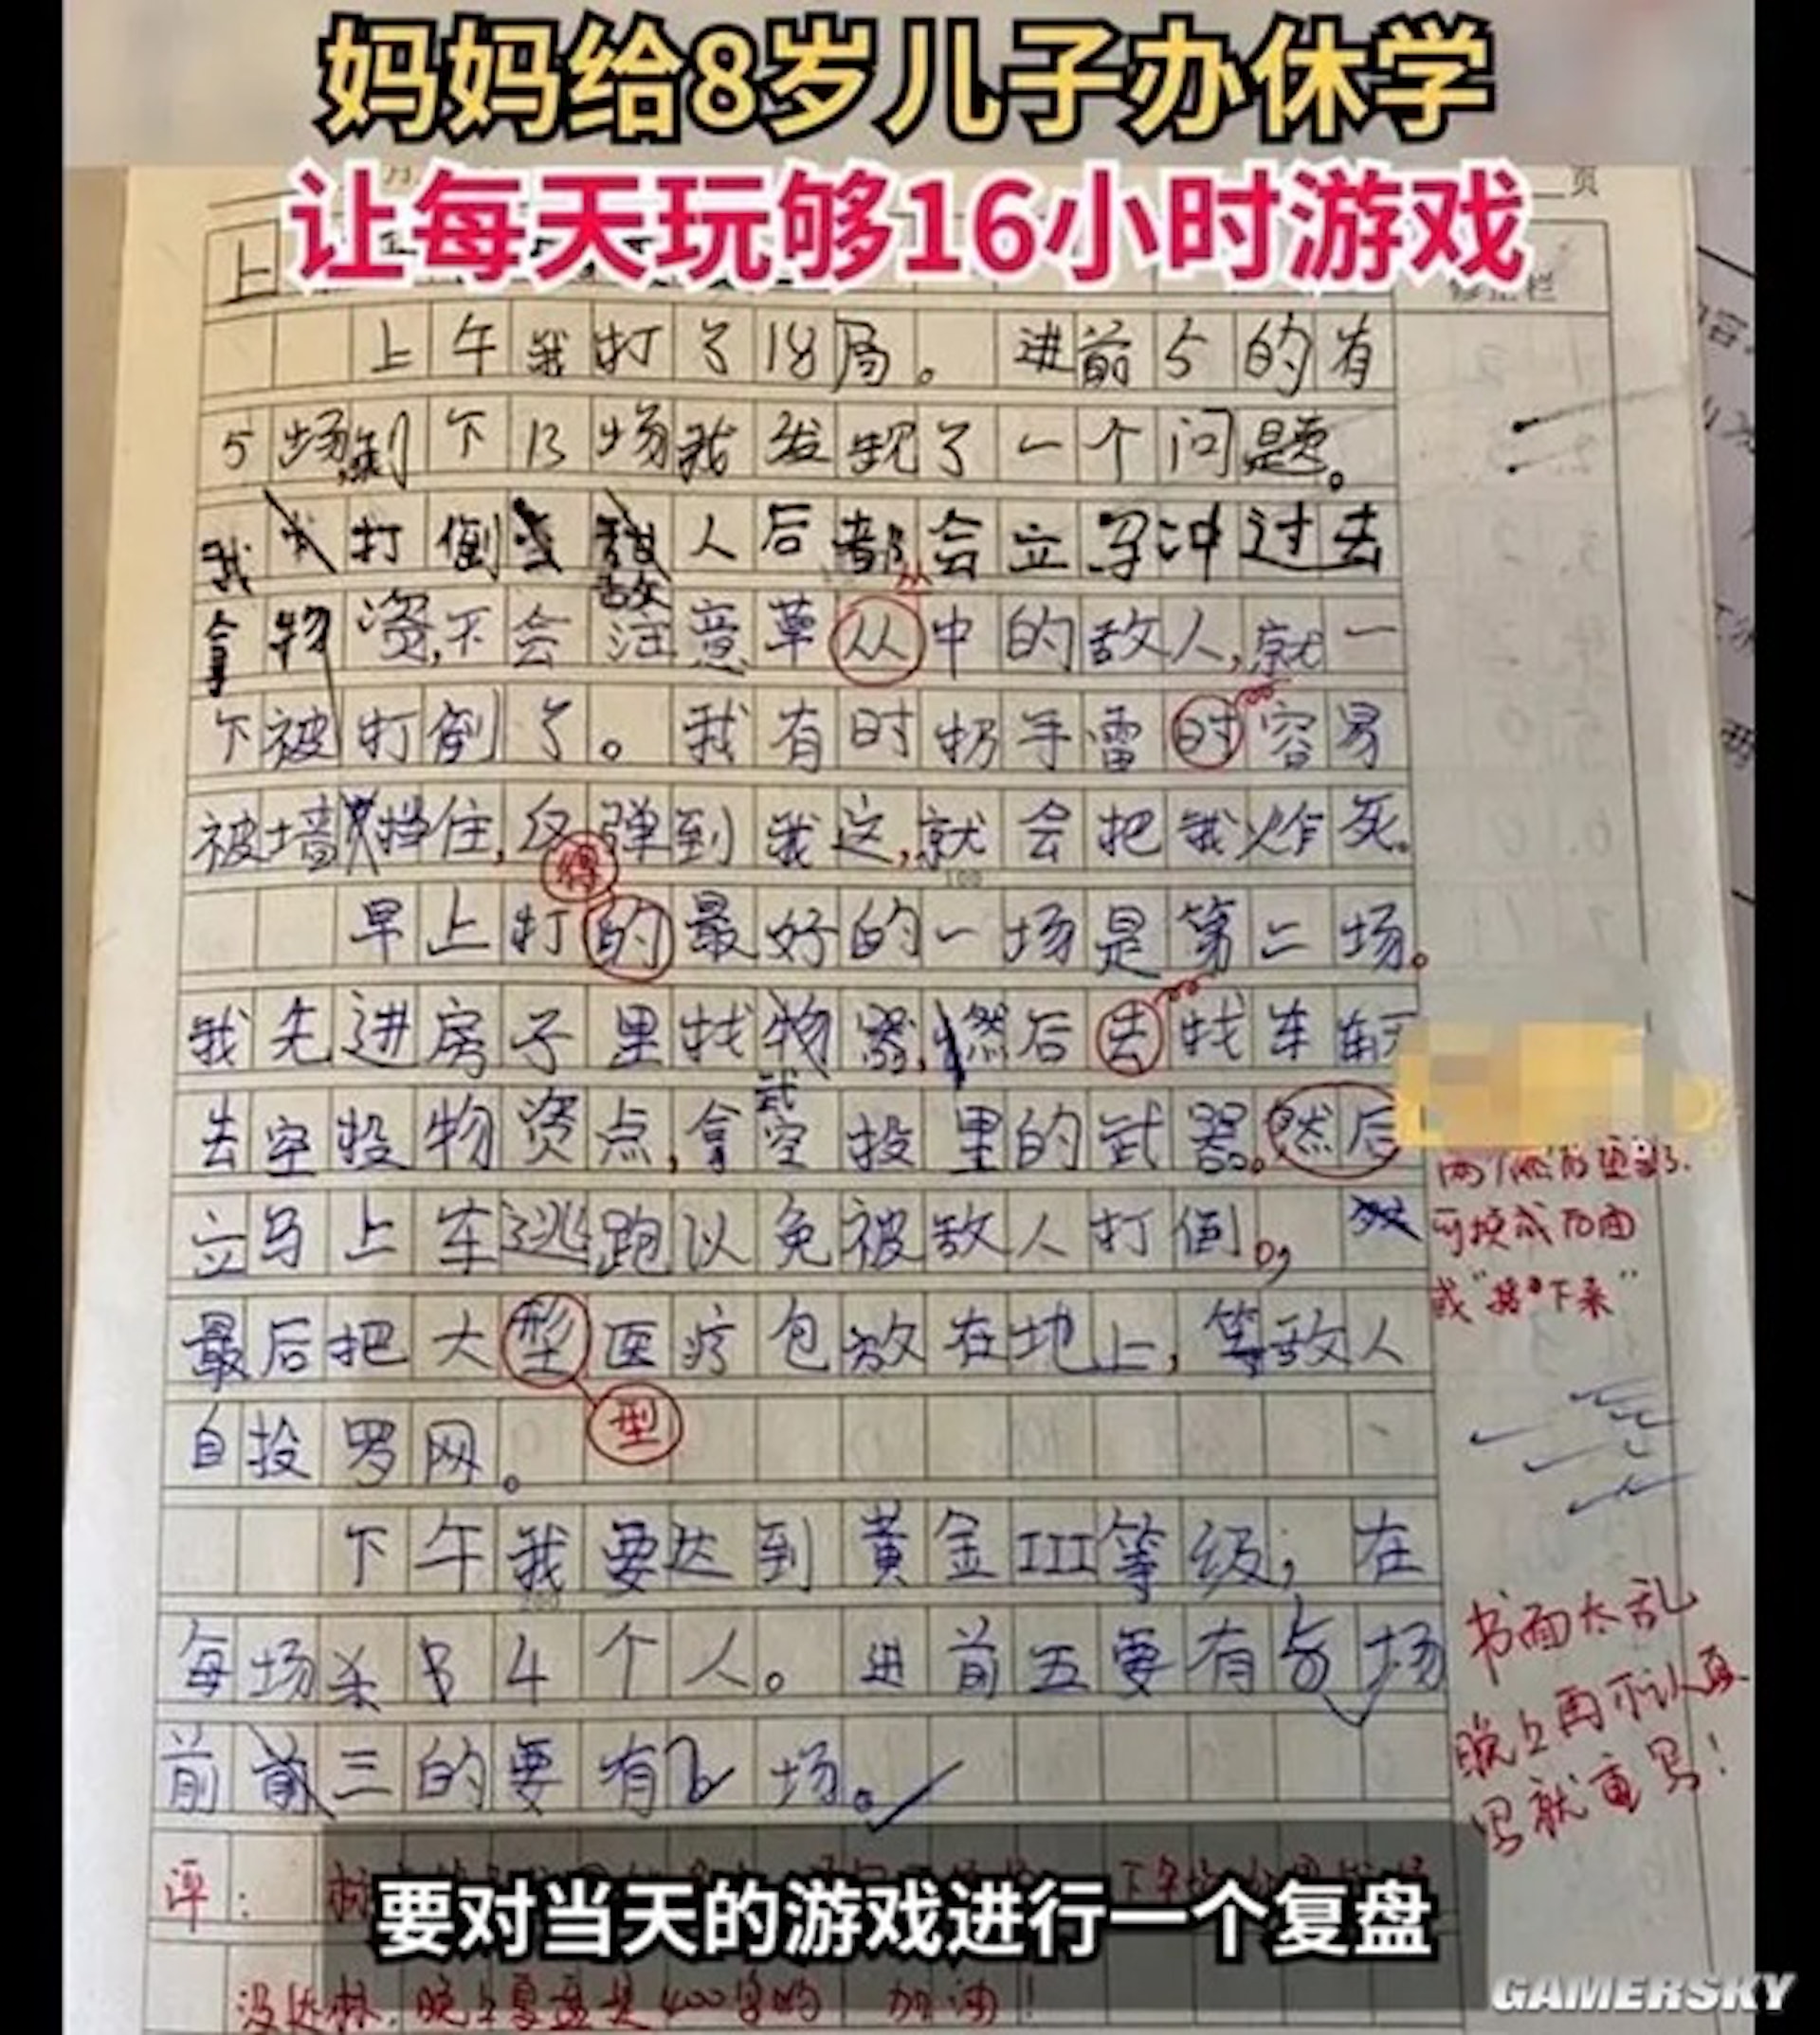 妈妈给8岁儿子办休学
让每天玩够16小时游戏
页
上
上午我打了18局。进前5的有
5场,剩下13场我发现了一个问题。
我打倒敌人后都会立马冲过去
拿物资,不会注意草从中的敌人,就一
下被打倒了。我有时扔手雷时容易
被墙挡住,反弹到我这,就会把我炸死。
得
早上打的最好的一场是第二场。
我先进房子里找武器,然后去找车
去空投物资点,拿空投里的武器。然后
立马上车逃跑以免被敌人打倒。
可换成后面
或"接下来"
最后把大型医疗包放在地上,等敌人
型
自投罗网。
下午我要达到黄金III等级;在
每场杀出4个人。进前五要有5场
前三的要有2场。
书面太乱
晚上再不认真
写就重写!
评:
要对当天的游戏进行一个复盘
没达标,晚上复盘是400字的!加油!
GAMERSKY